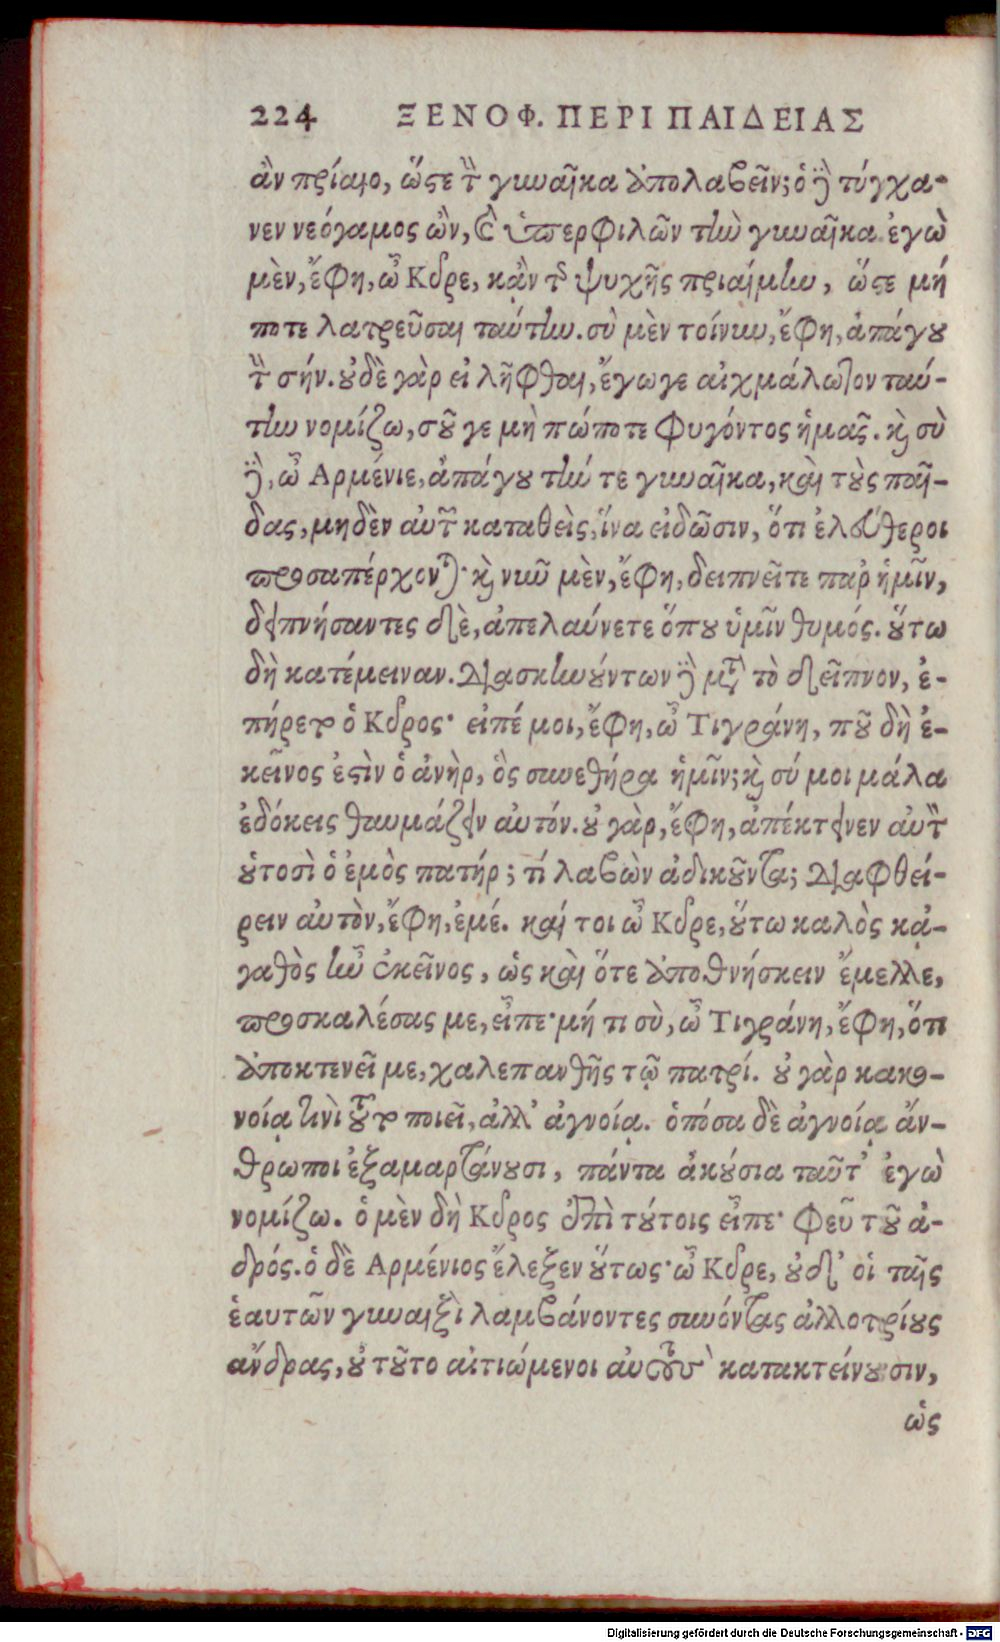 224 ΞΕΝΟΦ. ΠΕΡΙ ΠΑΙΔΕΙΑΣ
ἂν πρίαιο, ὥστε τὴν γυναῖκα ἀπολαβεῖν; ὁ δὲ τύγχα-
νεν νεόγαμος ὢν, καὶ ὑπερφιλῶν τὴν γυναῖκα. ἐγὼ
μὲν, ἔφη, ὦ Κῦρε, κᾂν τῆς ψυχῆς πριαίμην, ὥστε μή
ποτε λατρεῦσαι ταύτην. σὺ μὲν τοίνυν, ἔφη, ἀπάγου
τὴν σήν. οὐδὲ γὰρ εἰλῆφθαι, ἔγωγε αἰχμάλωτον ταύ-
την νομίζω, σοῦ γε μὴ πώποτε φυγόντος ἡμᾶς. καὶ σὺ
δὲ, ὦ Αρμένιε, ἀπάγου τήν τε γυναῖκα, καὶ τοὺς παῖ-
δας, μηδὲν αὐτῶν καταθεὶς, ἵνα εἰδῶσιν, ὅτι ἐλεύθεροι
προσαπέρχονται· καὶ νῦν μὲν, ἔφη, δειπνεῖτε παρ ἡμῖν,
δειπνήσαντες δὲ, ἀπελαύνετε ὅπου ὑμῖν θυμός. οὕτω
δὴ κατέμειναν. Διασκηνούντων δὲ μετὰ τὸ δεῖπνον, ἐ-
πήρετο ὁ Κῦρος· εἰπέ μοι, ἔφη, ὦ Τιγράνη, ποῦ δὴ ἐ-
κεῖνος ἐστὶν ὁ ἀνὴρ, ὃς συνεθήρα ἡμῖν; καὶ σύ μοι μάλα
ἐδόκεις θαυμάζειν αὐτόν. οὐ γὰρ, ἔφη, ἀπέκτεινεν αὐτὸν
οὑτοσὶ ὁ ἐμὸς πατήρ; τί λαβὼν ἀδικοῦντα; Διαφθεί-
ρειν αὐτὸν, ἔφη, ἐμέ. καί τοι ὦ Κῦρε, οὕτω καλὸς κᾀ-
γαθὸς ἦν ἐκεῖνος, ὡς καὶ ὅτε ἀποθνήσκειν ἔμελλε,
προσκαλέσας με, εἶπε· μή τι σὺ, ὦ Τιγράνη, ἔφη, ὅτι
ἀποκτενεῖ με, χαλεπανθῇς τῷ πατρί. οὐ γὰρ κακο-
νοίᾳ τινὶ τοῦτο ποιεῖ, ἀλλ' ἀγνοίᾳ. ὁπόσα δὲ ἀγνοίᾳ ἄν-
θρωποι ἐξαμαρτάνουσι, πάντα ἀκούσια ταῦτ' ἐγὼ
νομίζω. ὁ μὲν δὴ Κῦρος ἐπὶ τούτοις εἶπε· φεῦ τοῦ ἀ-
δρός. ὁ δὲ Αρμένιος ἔλεξεν οὕτως· ὦ Κῦρε, οὐδ' οἱ ταῖς
ἑαυτῶν γυναιξὶ λαμβάνοντες συνόντας ἀλλοτρίους
ἄνδρας, οὐ τοῦτο αἰτιώμενοι αὐτοὺς κατακτείνουσιν,
ὡς
Digitalisierung gefördert durch die Deutsche Forschungsgemeinschaft - DFG